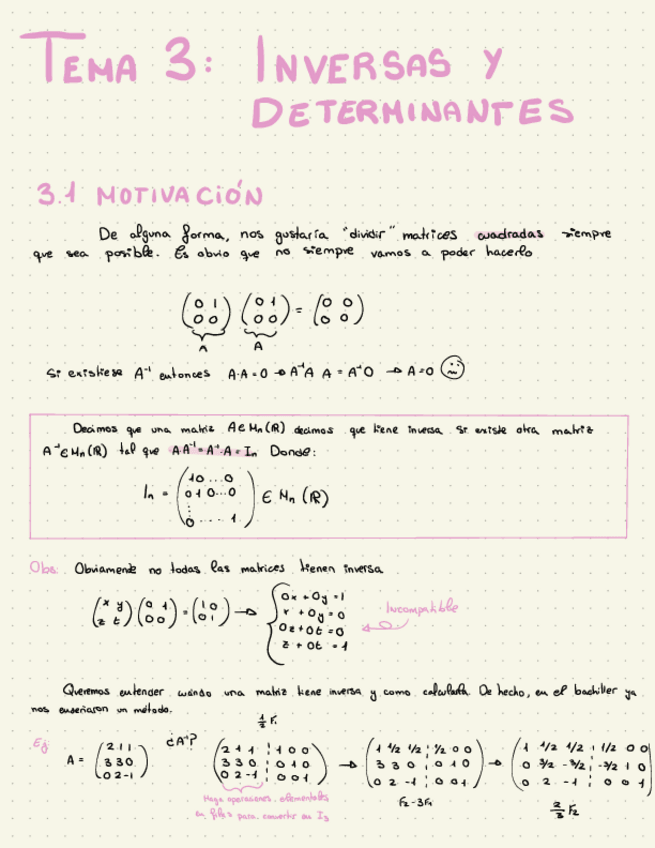 TEMA 3: INVERSAS Y
DETERMINANTES
3.1 MOTIVACIÓN
De alguna forma, nos gustaría "dividir" matrices cuadradas siempre
que sea posible. Es obvio que no siempre vamos a poder hacerlo
(0 1; 0 0) (0 1; 0 0) = (0 0; 0 0)
A A
Si existiese A⁻¹ entonces A·A=0 → A⁻¹A A = A⁻¹0 → A=0
Decimos que una matriz A∈Mn(ℝ) decimos que tiene inversa si existe otra matriz
A⁻¹∈Mn(ℝ) tal que A·A⁻¹=A⁻¹·A=In Donde:
In = (1 0 ... 0; 0 1 0 ... 0; ⋮; 0 .... 1) ∈ Mn (ℝ)
Obs: Obviamente no todas las matrices tienen inversa
(x y; z t) (0 1; 0 0) = (1 0; 0 1) → { 0x + 0y = 1
x + 0y = 0
0z + 0t = 0
z + 0t = 1
Incompatible
Queremos entender cuándo una matriz tiene inversa y como calcularla. De hecho, en el bachiller ya
nos enseñaron un método.
½ F₁
Ej: A = (2 1 1; 3 3 0; 0 2 -1) ¿A⁻¹? (2 1 1 ¦ 1 0 0; 3 3 0 ¦ 0 1 0; 0 2 -1 ¦ 0 0 1) → (1 1/2 1/2 ¦ 1/2 0 0; 3 3 0 ¦ 0 1 0; 0 2 -1 ¦ 0 0 1) → (1 1/2 1/2 ¦ 1/2 0 0; 0 3/2 -3/2 ¦ -3/2 1 0; 0 2 -1 ¦ 0 0 1)
Hago operaciones elementales
en filas para convertir en I₃
F₂-3F₁
2/3 F₂